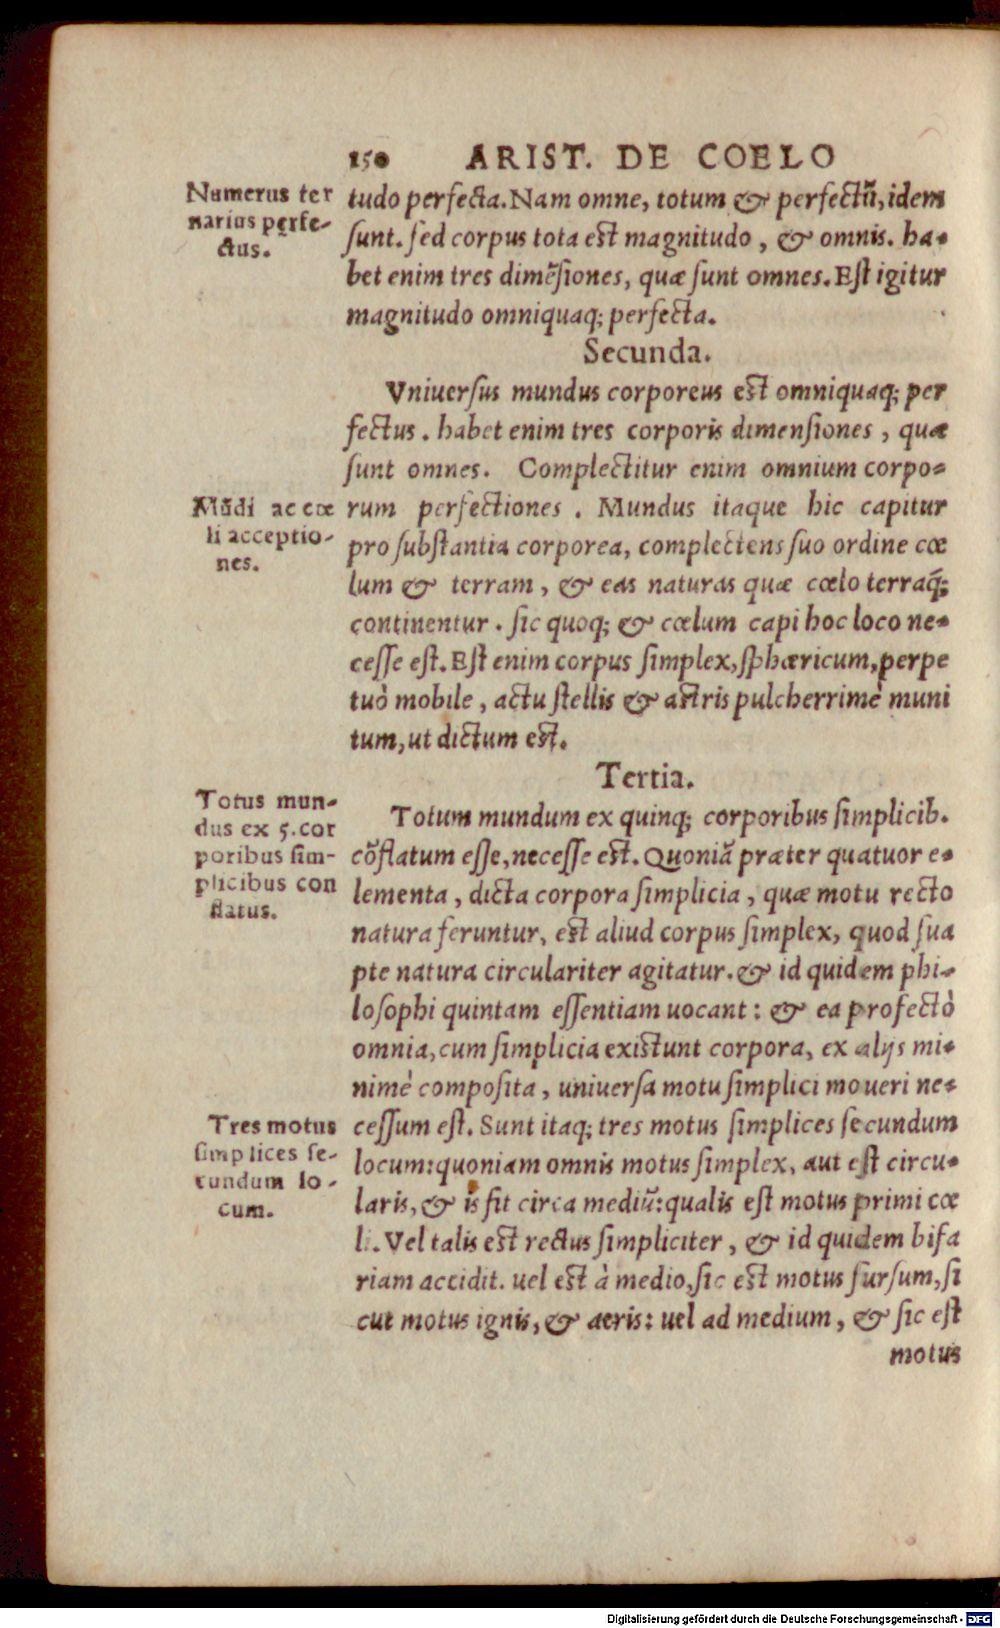 150 ARIST. DE COELO
Numerus ter
narius perfe-
ctus.
tudo perfecta. Nam omne, totum & perfectũ, idem
sunt. sed corpus tota est magnitudo, & omnis. ha-
bet enim tres dimẽsiones, quæ sunt omnes. Est igitur
magnitudo omniquaq; perfecta.
Secunda.
Vniuersus mundus corporeus est omniquaq; per
fectus. habet enim tres corporis dimensiones, quæ
sunt omnes. Complectitur enim omnium corpo-
Mũdi ac cœ
li acceptio-
nes.
rum perfectiones. Mundus itaque hic capitur
pro substantia corporea, complectens suo ordine cœ
lum & terram, & eas naturas quæ cœlo terraq̃;
continentur. sic quoq; & cœlum capi hoc loco ne-
cesse est. Est enim corpus simplex, sphæricum, perpe
tuò mobile, actu stellis & astris pulcherrimè muni
tum, ut dictum est.
Tertia.
Totus mun-
dus ex 5. cor
poribus sim-
plicibus con
flatus.
Totum mundum ex quinq; corporibus simplicib.
cõflatum esse, necesse est. Quoniã præter quatuor e-
lementa, dicta corpora simplicia, quæ motu recto
natura feruntur, est aliud corpus simplex, quod sua
pte natura circulariter agitatur. & id quidem phi-
losophi quintam essentiam uocant: & ea profectò
omnia, cum simplicia existunt corpora, ex alijs mi-
nimè composita, uniuersa motu simplici moueri ne-
Tres motus
simplices se-
cundum lo-
cum.
cessum est. Sunt itaq; tres motus simplices secundum
locum: quoniam omnis motus simplex, aut est circu-
laris, & is fit circa mediũ: qualis est motus primi cœ
li. Vel talis est rectus simpliciter, & id quidem bifa
riam accidit. uel est à medio, sic est motus sursum, si
cut motus ignis, & aeris: uel ad medium, & sic est
motus
Digitalisierung gefördert durch die Deutsche Forschungsgemeinschaft - DFG